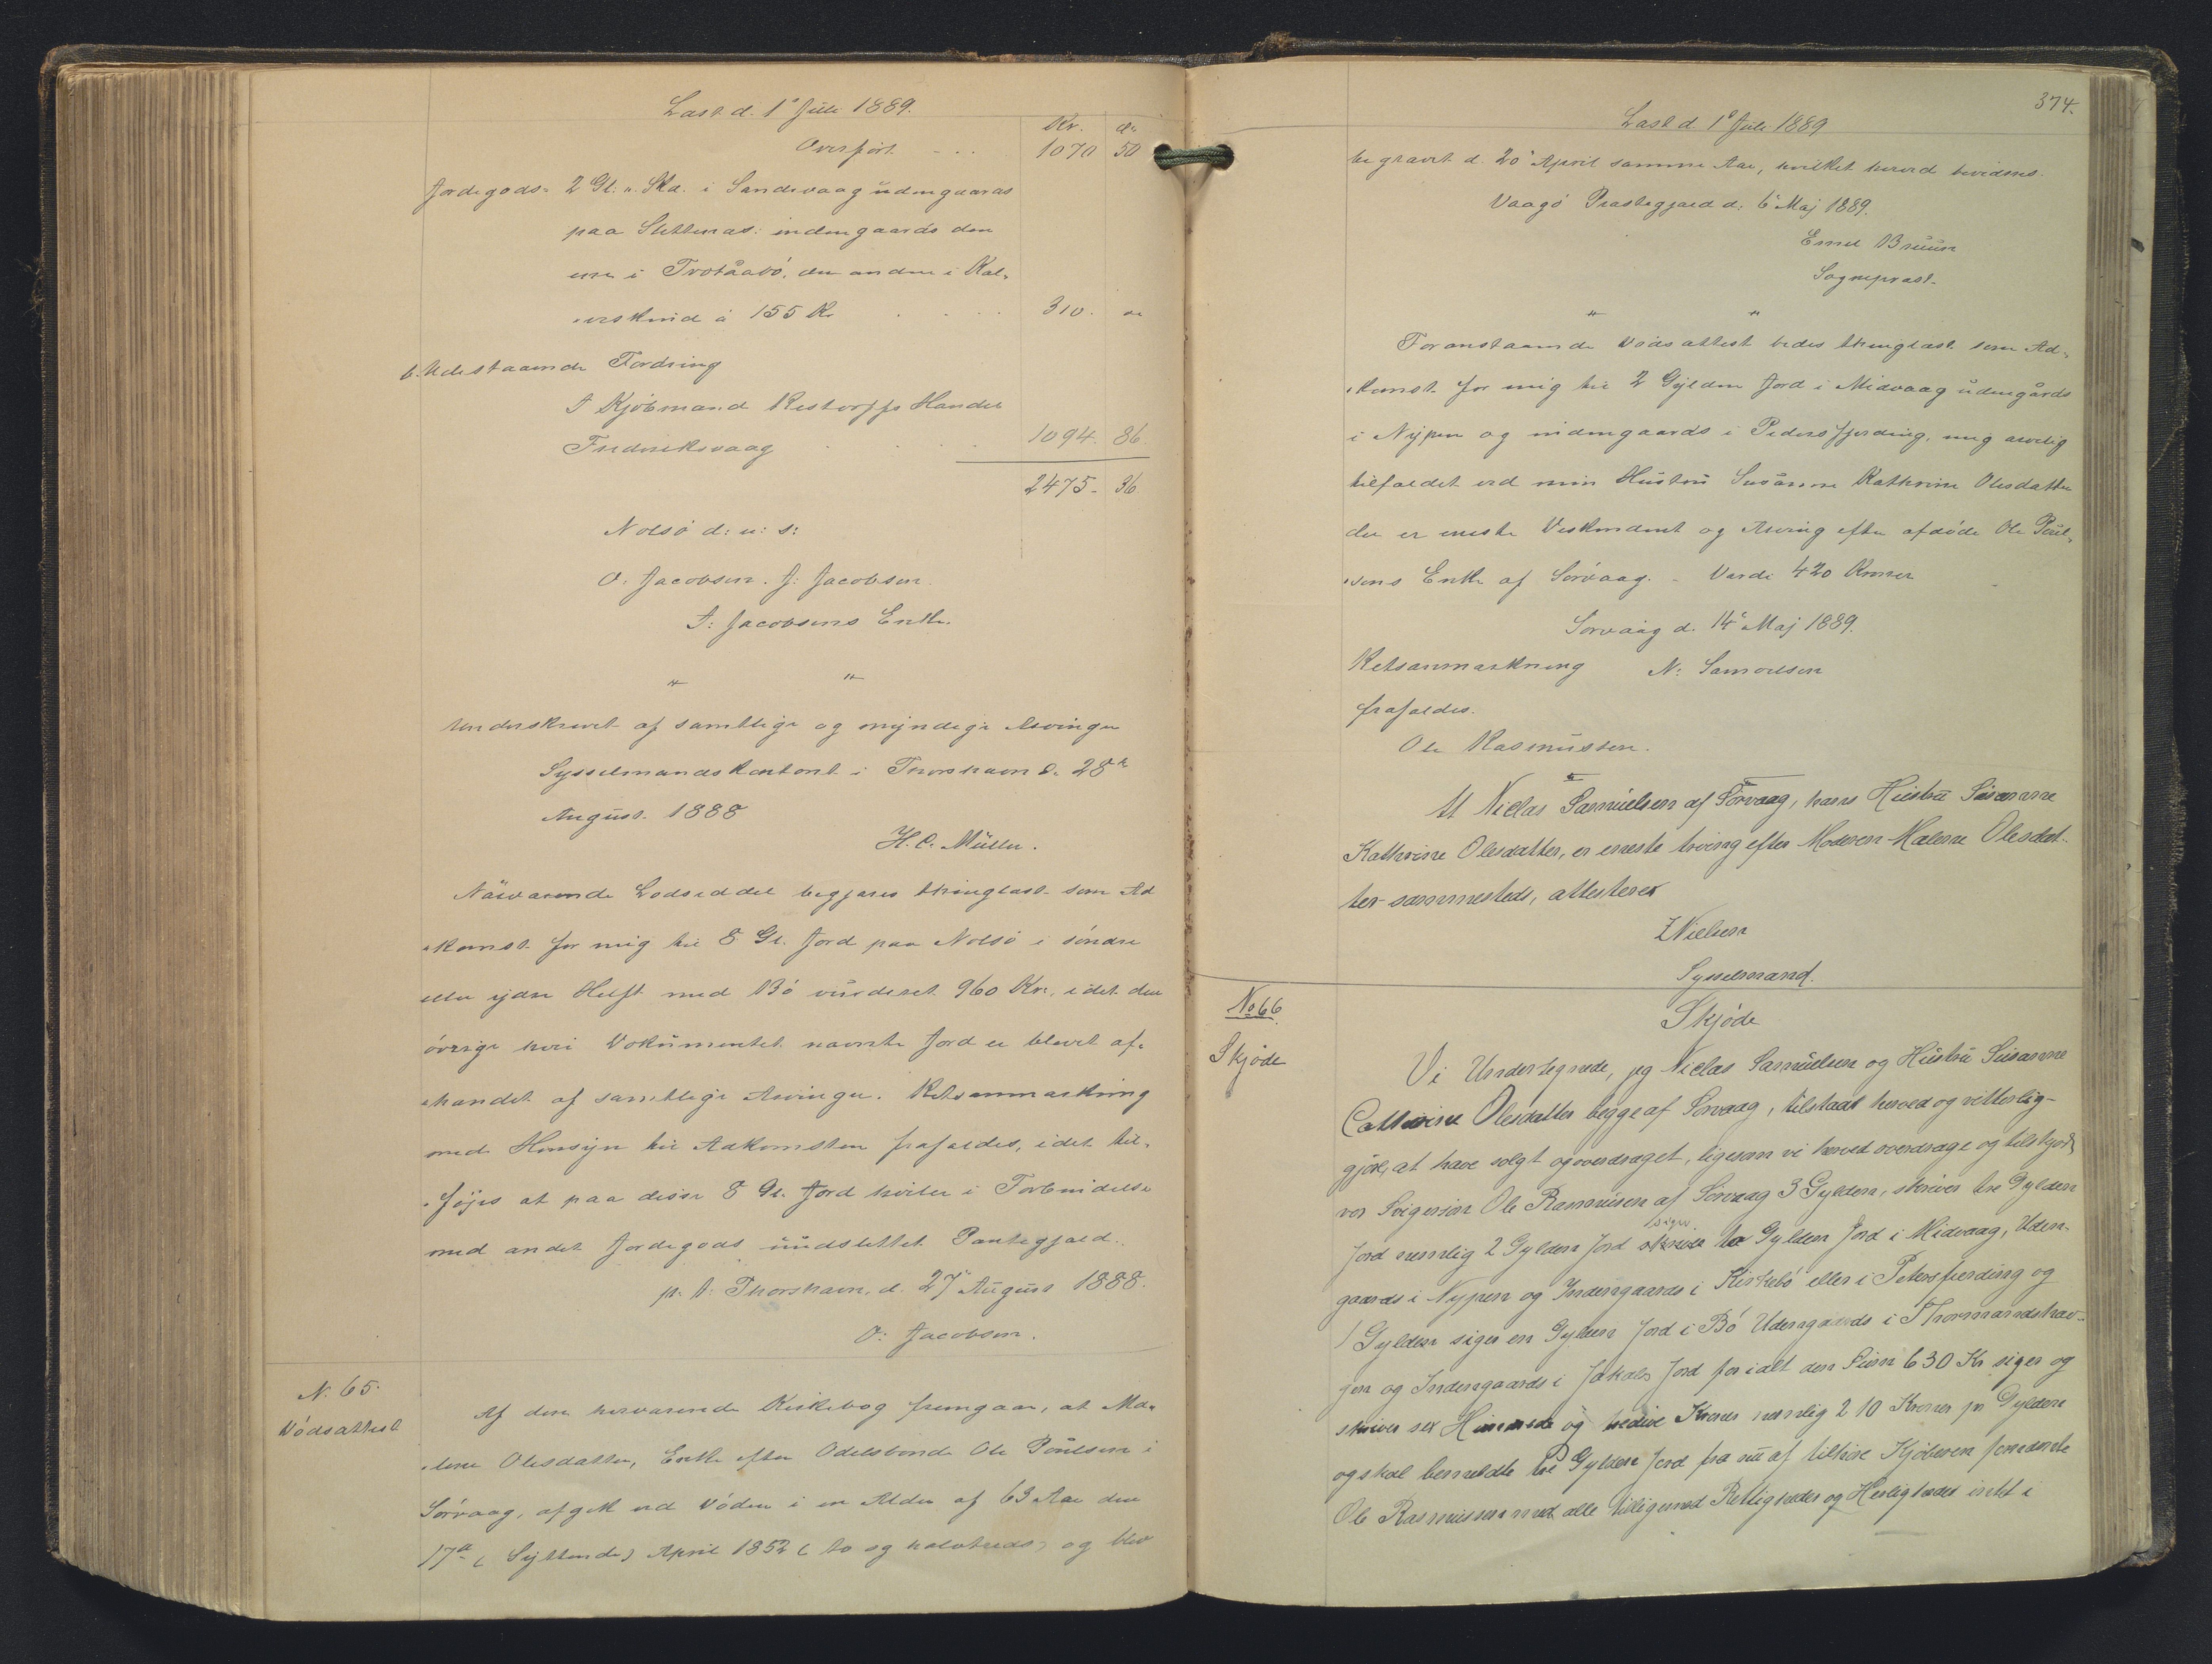 Læst d. 1ᵉ Juli 1889.
Kr. Ør.
Overført - - - 1070 50
Jordegods: 2 Gl. " Skd. i Sandevaag udengaards
paa Slettenæs: indengaards den
ene i Trotaabø, den anden i Kal-
-verskind á 155 Kr. 310. "
6. Udestaaende Fordring
I Kjøbmand Restorffs Handel
Frederiksvaag 1094. 86
2475. 36
Nolsø d: u: s:
O: Jacobsen. J: Jacobsen.
J: Jacobsens Enke.
" "
Underskrevet af samtlige og myndige Arvinger
Sysselmandskontoret i Thorshavn d. 28ᵈᵉ
August 1888
H. C. Müller.
Nærværende Lodseddel begjæres thinglæst som Ad
-komst for mig til 8 Gl. Jord paa Nolsø i søndre
eller ydre Helft med Bø vurderet 960 Kr., idet den
øvrige heri Dokumentet nævnte Jord er blevet af-
-handet af samtlige Arvinger. Retsanmærkning
med Hensyn til Adkomsten frafaldes, idet til-
-føjes at paa disse 8 Gl. Jord hviler i Forbindelse
med andet Jordegods uudslettet Pantegjæld.
p. t. Thorshavn, d. 27 August 1888.
O: Jacobsen.
N. 65.
Dødsattest
Af den herværende Kirkebog fremgaar, at Ma-
-lene Olesdatter, Enke efter Odelsbonde Ole Poulsen i
Sørvaag, afgik ved Døden i en Alder af 63 Aar den
17ᵈᵉ (Syttende) April 1852 (to og halvtreds) og blev
374.
Læst d. 1ᵉ Juli 1889
begravet d. 20ᵉ April samme Aar, hvilket herved bevidnes.
Vaagø Præstegjæld d: 6ᵉ Maj 1889.
Emil Bruun
Sognepræst.
" "
Foranstaaende Dødsattest bedes thinglæst som Ad-
-komst for mig til 2 Gylden Jord i Midvaag udengårds
i Nypen og indengaards i Pedersfjerding, mig arvelig
tilfaldet ved min Hustru Susanne Kathrine Olesdatter
der er eneste Udskudent og Arving efter afdøde Ole Poul-
-sens Enke af Sørvaag. - Værdi 420 Kroner
Sørvaag d. 14ᵉ Maj 1889.
Retsanmærkning N: Samuelsen
frafaldes.
Ole Rasmussen.
At Niclas Samuelsen af Sørvaag, hans Hustru Susanne
Kathrine Olesdatter, er eneste Arving efter Moderen Malene Olesdat-
ter sammesteds, attesterer
Z Nielsen
Sysselmand.
No 66
Skjøde
Skjøde
Vi Undertegnede, jeg Niclas Samuelsen og Hustru Susanne
Cathrine Olesdatter begge af Sørvaag, tilstaar herved og vitterlig-
gjøre, at have solgt og overdraget, ligesom vi herved overdrage og tilskjøde
vor Svigersøn Ole Rasmussen af Sørvaag 3 Gylden, skriver tre Gylden
Jord nemlig 2 Gylden Jord skriver siger to Gylden Jord i Midvaag, Uden-
gaards i Nypen og Indengaards i Kirkebø eller i Petersfjerding og
1 Gylden siger en Gylden Jord i Bø Udengaards i Thormandshav-
gen og Indengaards i Jakobs Jord for ialt den Sum 630 Kr. siger og
skriver sex Hundrede og tredive Kroner nemlig 210 Kroner pr Gylden
og skal bemeldte tre Gylden Jord fra nu af tilhøre Kjøberen fornævnte
Ole Rasmussen med alle tilligemed Rettigheder og Herligheder intet i